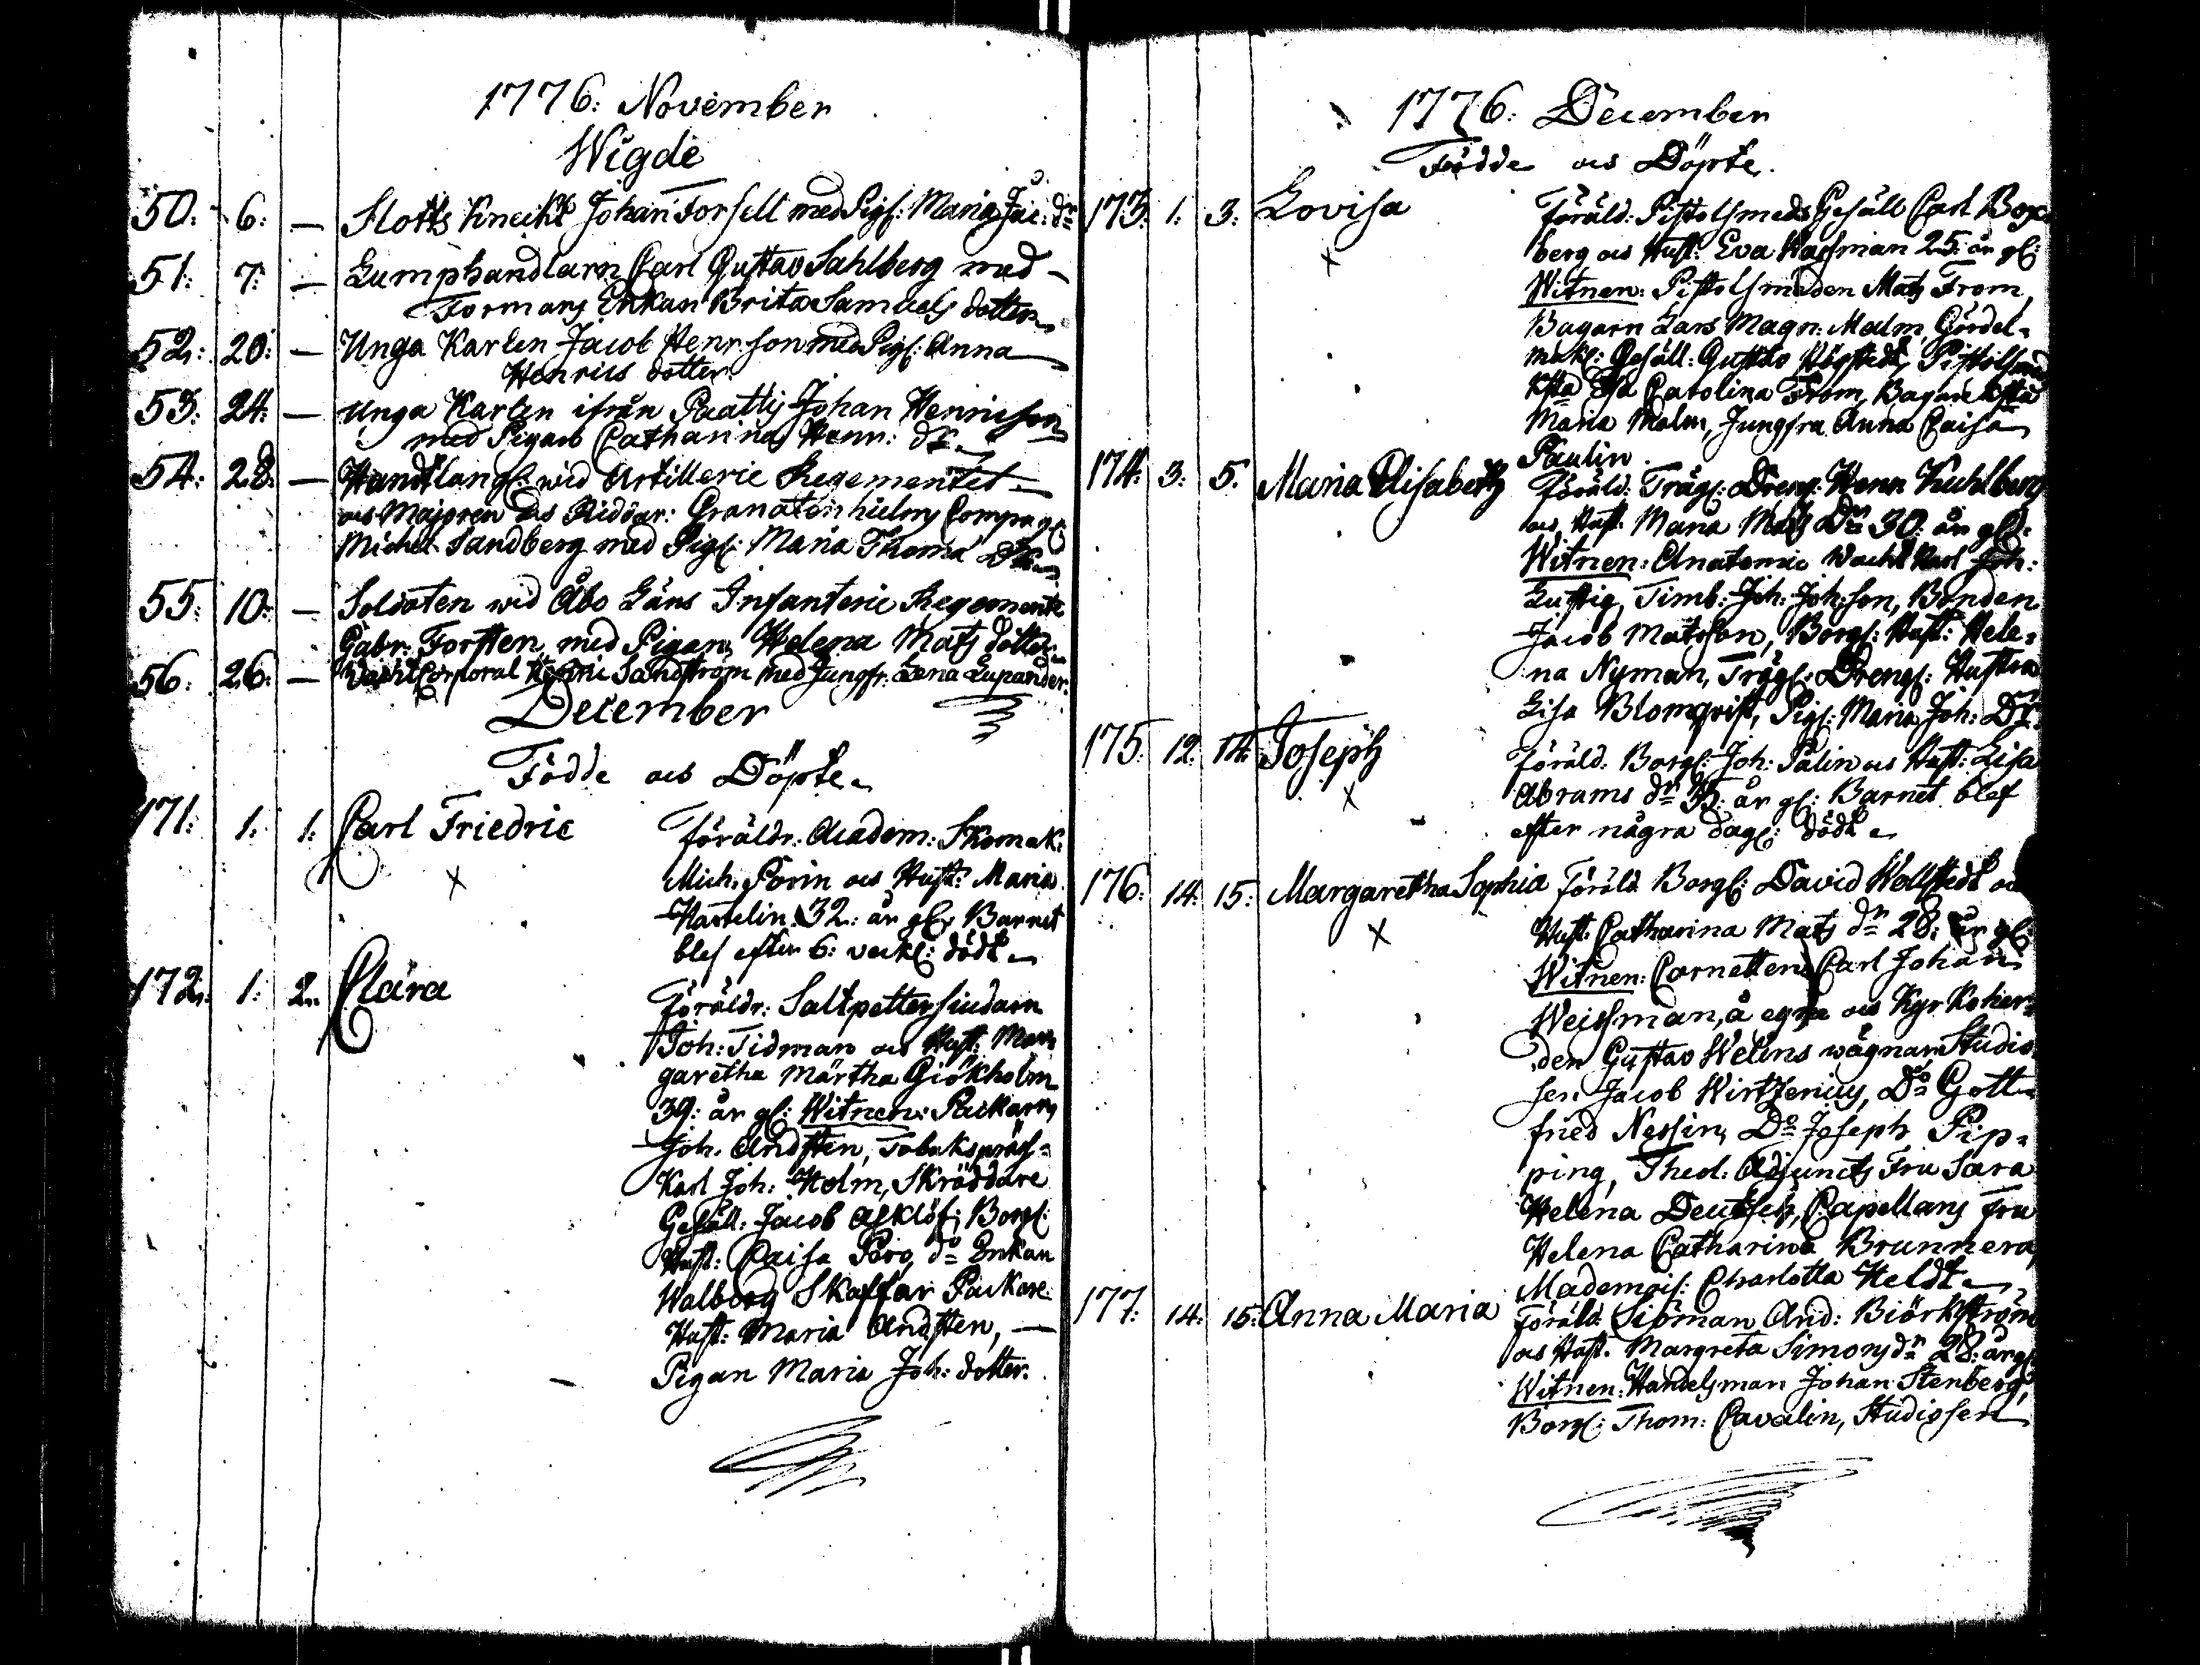 1776: November
Wigde
50: 6: — Slotts Kneckt Johan Forsell med Pig: Maria Jac: dr
51: 7: — Lumphandlarn Carl Gustav Sahlberg med
Formans Enkan Brita Samuels dotter
52: 20: — Unga Karlen Jacob Henr:son med Pig: Anna
Henrics dotter
53: 24: — Unga Karlen ifrån Paattis Johan Henricson
med Pigan Catharina Henr: dr
54: 28: — Handtlang: wid Artillerie Regementet
Majoren Riddar: Granatenhielms Compag:
Michel Sandberg med Pig: Maria Thoma Dr
55: 10: — Soldaten wid Åbo Läns Infanterie Regemente
Gabr: Forsten, med Pigan Helena Mats dotter
56: 26: — Wacht Corporal Henric Sandström med Jungfr: Lena Lupander.
December
Födde och Döpte
171: 1: 1: Carl Friedric Föräldr: Academ: Skomak:
Mich: Porin och Hust: Maria
32: år gl: Barnet
blef efter 6: veck: dödt
172: 1: 2: Clara Föräldr: Saltpettersiudarn
Joh: Tidman och Hust: Mar
garetha Märtha Giökholm
39: år gl: Witnen: Packarn
Joh: Andsten, Tobaks
Karl Joh: Holm, Skräddare
Gesäll: Jacob Asklöf, Borg:
Hust: Caisa do Enkan
Walborg Skaffar Packare
Hust: Maria Andsten, —
Pigan Maria Joh: dotter.
1776: December
Födde och Döpte.
173: 1: 3: Lovisa Föräld: Pistolsmeds Gesäll Carl Box
berg och Hust: Eva Wassman 25: år gl:
Witnen: Pistolsmeden Mats From,
Bagarn Lars Magn: Malm, Gördel=
mak: Gesäll: Gustav Högstedt, Pistolsmed
Carolina From, Bagare
Maria Malm, Jungfru Anna Caisa
Paulin.
174: 3: 5. Maria Elisabeth Föräld: Träg: Dreng: Henr Kuhlberg
och Hust: Maria Mats Dr 30: år gl:
Witnen: Anatomie Wacht Karl Joh:
Lustig, Timb: Joh: Joh:son, Bonden
Jacob Matsson, Borg: Hust: Hele=
na Nyman, Trägg: Dreng: Hustru
Lisa Blomqvist, Pig: Maria Joh: Dr
175: 12: 14: Joseph Föräld: Borg: Joh: Palin och Hust: Lisa
Abrams dr 35: år gl: Barnet blef
efter några dag: dödt
176: 14: 15: Margaretha Sophia Föräld: Borg: David Wellstedt och
Hust: Catharina Mats dr 28: år gl:
Witnen: Cornetten Carl Johan
Weissman, å egna och Kyrkoher=
den Gustav Welins wägnar, Studio
sen Jacob Wirtzenius, Do Gott=
fried Nessin, Do Joseph Pip=
ping, Theol: Adjuncts Fru Sara
Helena Deutsch, Capellans Fru
Helena Catharina Brunnera
Mademois: Charlotta Heldt
177: 14: 15: Anna Maria Föräld: Siöman And: Biörkström
och Hust: Margreta Simons dr 28: år gl:
Witnen: Handelsman Johan Stenberg,
Borg: Thom: Cavalin, Studiosen